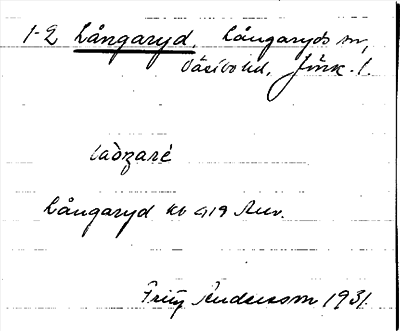 1-2 Långaryd, Långaryds sn,
Västbo hd, Jönk. l.
Långaryd kb 419 Anv.
Fritz Andersson 1931.